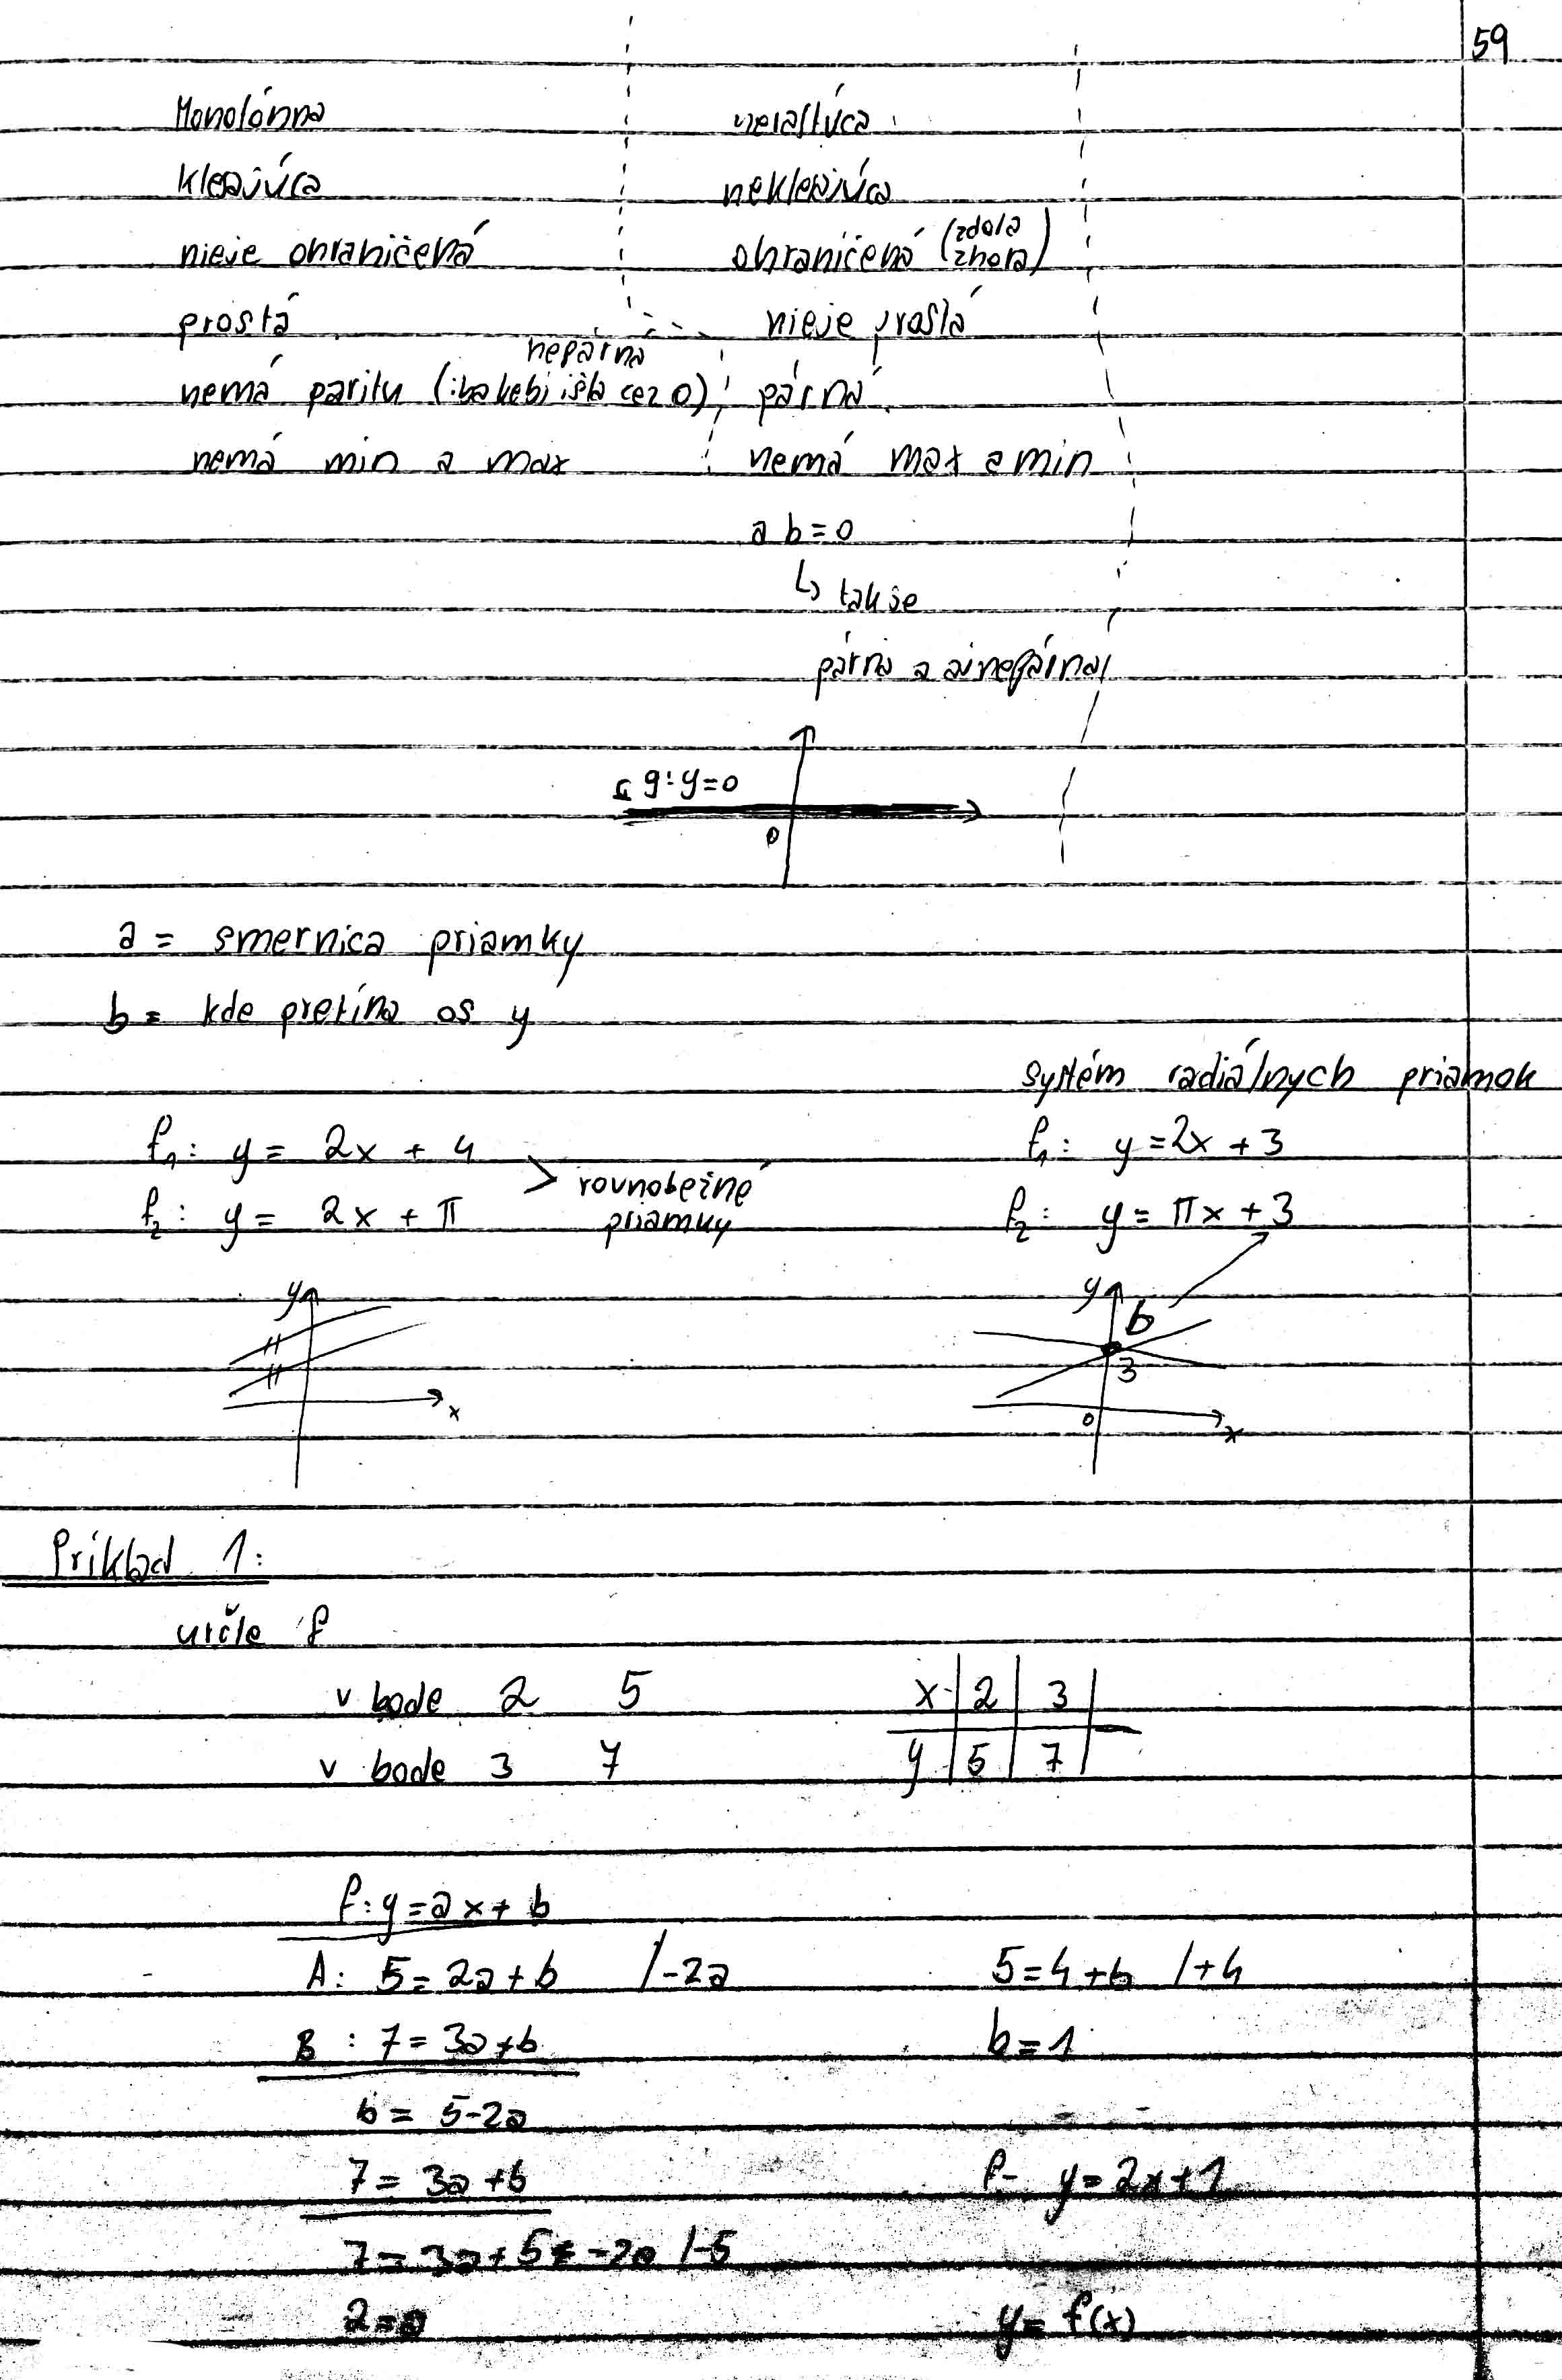 59
Monotónna nerastúca
klesajúca neklesajúca
nieje ohraničená ohraničená (zdola zhora)
prostá nieje prostá
nepárna
nemá paritu (iba keby išla cez 0) párna
nemá min a max nemá max a min
a b=0
↳ tak je
párna a aj nepárna
g: y=0
0
a = smernica priamky
b = kde pretína os y
systém radiálnych priamok
f₁: y = 2x + 4 f₁: y = 2x + 3
> rovnobežné priamky
f₂: y = 2x + π f₂: y = πx + 3
y y b
3
x 0 x
Príklad 1:
určte f
v bode 2 5 x 2 3
v bode 3 7 y 5 7
f: y = ax + b
A: 5 = 2a + b /-2a 5 = 4 + b /+4
B: 7 = 3a + b b = 1
b = 5-2a
7 = 3a + b f- y = 2x + 1
7 = 3a + 5 -2a /-5
2 = a y = f(x)